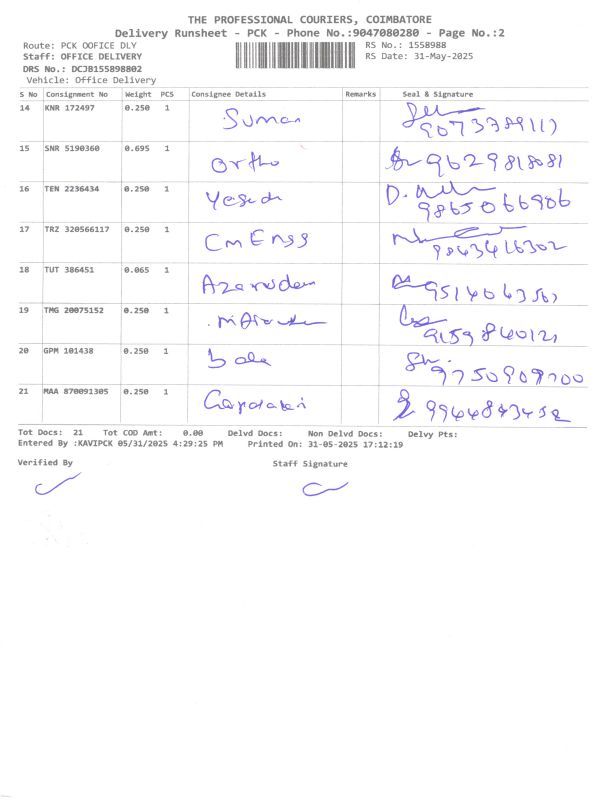 THE PROFESSIONAL COURIERS, COIMBATORE
Delivery Runsheet - PCK - Phone No.:9047080280 - Page No.:2
Route: PCK OOFICE DLY RS No.: 1558988
Staff: OFFICE DELIVERY RS Date: 31-May-2025
DRS No.: DCJB155898802
Vehicle: Office Delivery
S No Consignment No Weight PCS Consignee Details Remarks Seal & Signature
14 KNR 172497 0.250 1 Suman
15 SNR 5190360 0.695 1 Ortho 9629818081
16 TEN 2236434 0.250 1 9865066906
17 TRZ 320566117 0.250 1 Cm Engg 9843416302
18 TUT 386451 0.065 1
19 TMG 20075152 0.250 1
20 GPM 101438 0.250 1 bala
21 MAA 870091305 0.250 1
Tot Docs: 21 Tot COD Amt: 0.00 Delvd Docs: Non Delvd Docs: Delvy Pts:
Entered By :KAVIPCK 05/31/2025 4:29:25 PM Printed On: 31-05-2025 17:12:19
Verified By Staff Signature